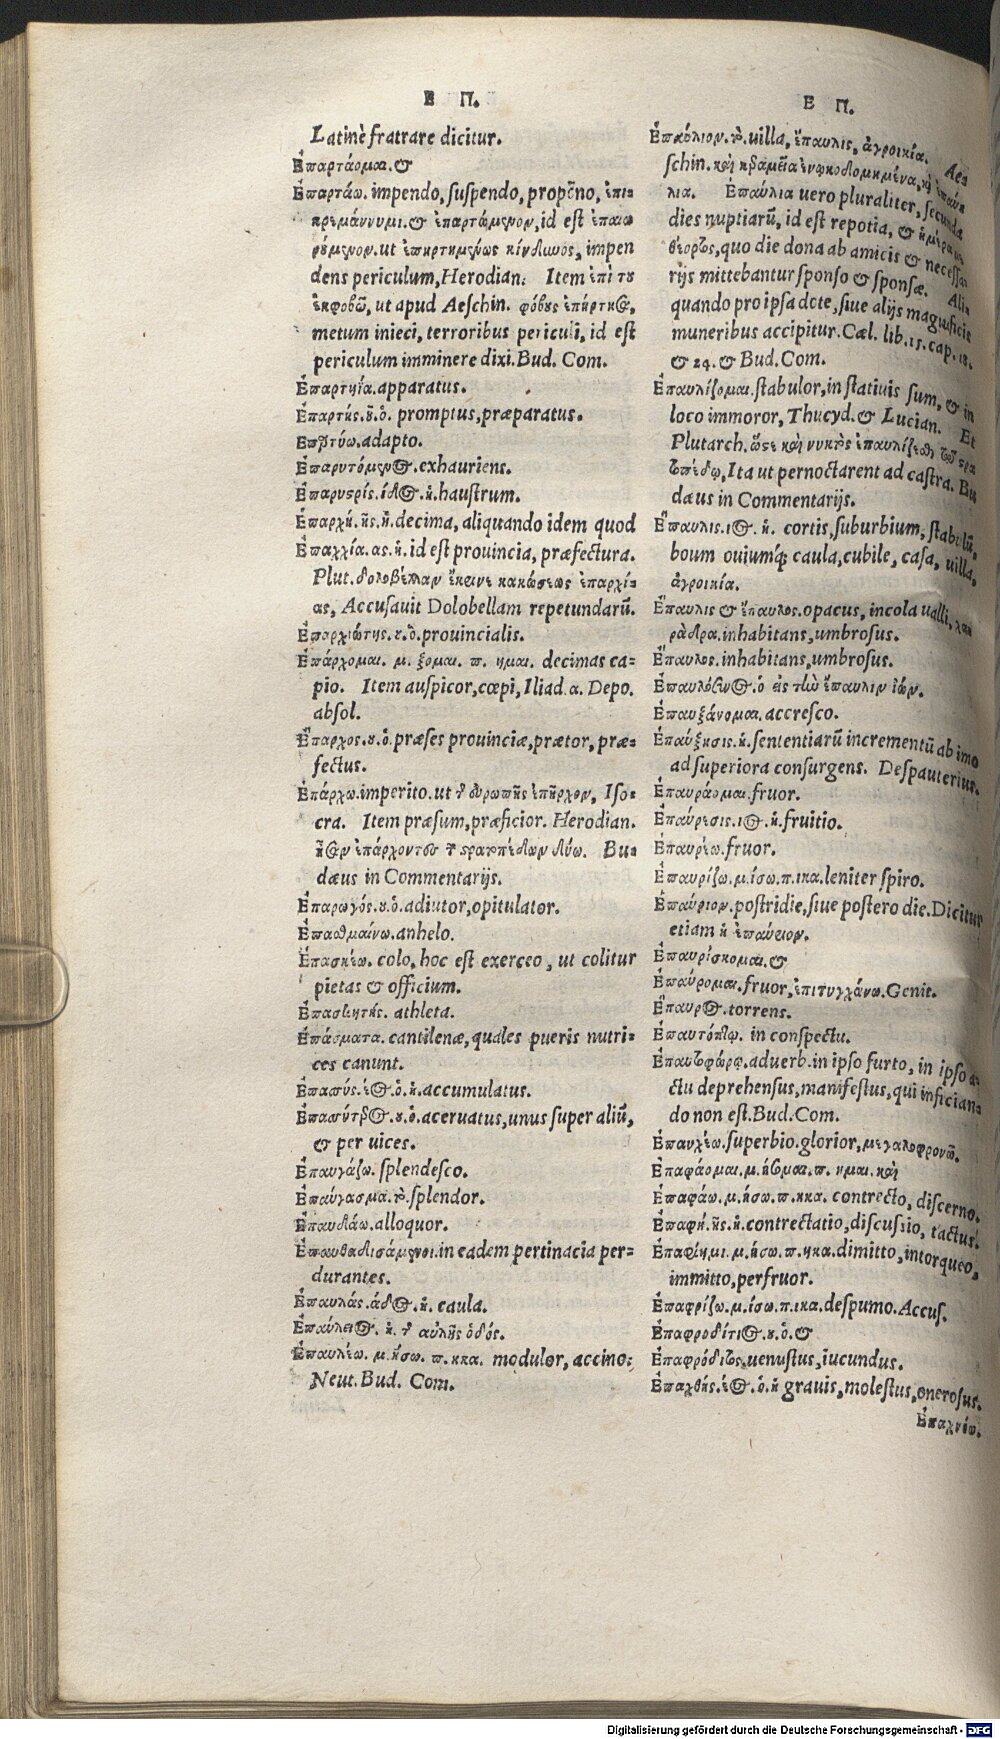 Ε Π.
Latinè fratrare dicitur.
Ἐπαρτάομαι. &
Ἐπαρτάω. impendo, suspendo, propẽno, ἐπι-
κρεμάννυμι. & ἐπαρτώμενον, id est ἐπαιω
ρούμενον. ut ἐπηρτημένος κίνδυνος, impen
dens periculum, Herodian. Item ἐπὶ τοῦ
ἐκφοβῶ, ut apud Aeschin. φόβους ἐπήρτησε,
metum inieci, terroribus periculi, id est
periculum imminere dixi. Bud. Com.
Ἐπαρτηία. apparatus.
Ἐπαρτής. οῦ. ὁ. promptus, præparatus.
Ἐπαρτύω. adapto.
Ἐπαρυτόμενος. exhauriens.
Ἐπαρυστρίς. ίδος. ἡ. haustrum.
Ἐπαρχή. ῆς. ἡ. decima, aliquando idem quod
Ἐπαρχία. ας. ἡ. id est prouincia, præfectura.
Plut. δολοβέλλαν ἔκρινε κακώσεως ἐπαρχί-
ας, Accusauit Dolobellam repetundarũ.
Ἐπαρχιώτης. ου. ὁ. prouincialis.
Ἐπάρχομαι. μ. ξομαι. π. ημαι. decimas ca-
pio. Item auspicor, cœpi, Iliad. α. Depo.
absol.
Ἔπαρχος. ου. ὁ. præses prouinciæ, prætor, præ-
fectus.
Ἐπάρχω. imperito. ut τῆς εὐρώπης ἐπῆρχον, Iso-
cra. Item præsum, præficior. Herodian.
ἐπάρχοντος τῶν στρατοπέδων δύω. Bu-
dæus in Commentarijs.
Ἐπαρωγός. οῦ. ὁ. adiutor, opitulator.
Ἐπασθμαίνω. anhelo.
Ἐπασκέω. colo, hoc est exerceo, ut colitur
pietas & officium.
Ἐπασκητής. athleta.
Ἐπάσματα. cantilenæ, quales pueris nutri-
ces canunt.
Ἐπασσύς. έος. ὁ. ἡ. accumulatus.
Ἐπασσύτερος. ου. ὁ. aceruatus, unus super aliũ,
& per uices.
Ἐπαυγάζω. splendesco.
Ἐπαύγασμα. το. splendor.
Ἐπαυδάω. alloquor.
Ἐπαυθαδισάμενοι. in eadem pertinacia per-
durantes.
Ἐπαυλάς. άδος. ἡ. caula.
Ἐπαύλειος. ἡ. τῆς αὐλῆς ὁδός.
Ἐπαυλέω. μ. ήσω. π. ηκα. modulor, accino:
Neut. Bud. Com.
Ε Π.
Ἐπαύλιον. το. uilla, ἔπαυλις, ἀγροικία. Aes
schin. καὶ ἐνῳκοδομημένα, καὶ ἐπαύ
λια. Ἐπαύλια uero pluraliter, secunda
dies nuptiarũ, id est repotia, & ἡμέρα
quo die dona ab amicis & necessa
rijs mittebantur sponso & sponsæ. Ali-
quando pro ipsa dote, siue alijs magnificis
muneribus accipitur. Cæl. lib. 15. cap. 18.
& 24. & Bud. Com.
Ἐπαυλίζομαι. stabulor, in statiuis sum, & in
loco immoror, Thucyd. & Lucian. Et
Plutarch. ὥστε καὶ νυκτὸς ἐπαυλίζεσθαι τῷ στρα
τοπέδῳ, Ita ut pernoctarent ad castra. Bu
dæus in Commentarijs.
Ἔπαυλις. ιος. ἡ. cortis, suburbium, stabulũ,
boum ouiumq́; caula, cubile, casa, uilla,
ἀγροικία.
Ἔπαυλις & ἔπαυλος. opacus, incola ualli, χα
ράδρα. inhabitans, umbrosus.
Ἔπαυλος. inhabitans, umbrosus.
Ἐπαυλόσυνος. ὁ εἰς τὴν ἔπαυλιν ἰών.
Ἐπαυξάνομαι. accresco.
Ἐπαύξησις. ἡ. sententiarũ incrementũ ab imo
ad superiora consurgens. Despauterius.
Ἐπαυράομαι. fruor.
Ἐπαύρεσις. ιος. ἡ. fruitio.
Ἐπαυρέω. fruor.
Ἐπαυρίζω. μ. ίσω. π. ικα. leniter spiro.
Ἐπαύριον. postridie, siue postero die. Dicitur
etiam ἡ ἐπαύριον.
Ἐπαυρίσκομαι. &
Ἐπαύρομαι. fruor, ἐπιτυγχάνω. Genit.
Ἔπαυρος. torrens.
Ἐπαυτόπτῳ. in conspectu.
Ἐπαυτοφώρῳ. aduerb. in ipso furto, in ipso a-
ctu deprehensus, manifestus, qui infician-
do non est. Bud. Com.
Ἐπαυχέω. superbio. glorior, μεγαλοφρονῶ.
Ἐπαφάομαι. μ. ήσομαι. π. ημαι. καὶ
Ἐπαφάω. μ. ήσω. π. ηκα. contrecto, discerno.
Ἐπαφή. ῆς. ἡ. contrectatio, discussio, tactus.
Ἐπαφίημι. μ. ήσω. π. ηκα. dimitto, intorqueo,
immitto, perfruor.
Ἐπαφρίζω. μ. ίσω. π. ικα. despumo. Accus.
Ἐπαφροδίτιος. ου. ὁ. &
Ἐπαφρόδιτος. uenustus, iucundus.
Ἐπαχθής. έος. ὁ. ἡ grauis, molestus, onerosus.
Ἐπαχνίω.
Digitalisierung gefördert durch die Deutsche Forschungsgemeinschaft - DFG